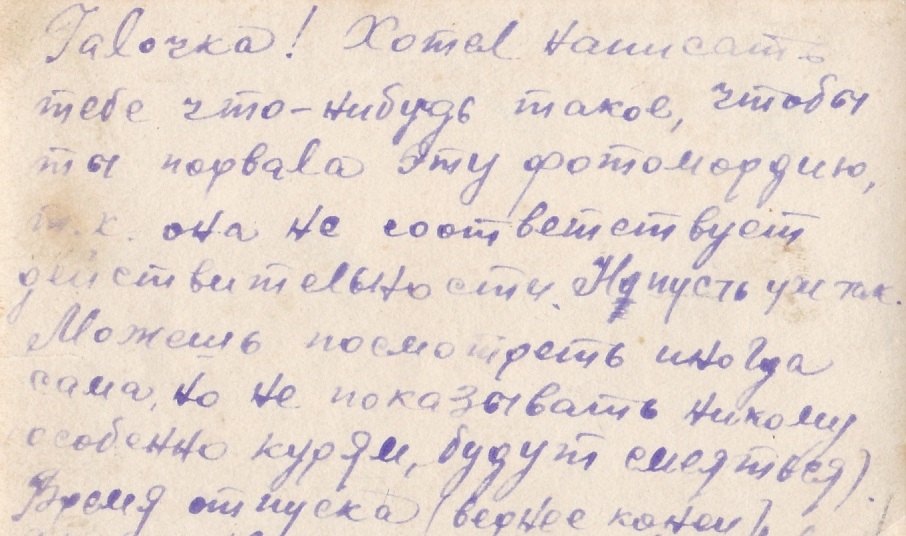 Галочка! Хотел написать
тебе что-нибудь такое, чтобы
ты порвала эту фотомордию,
т.к. она не соответствует
действительности. Ну пусть уж так.
Можешь посмотреть иногда
сама, но не показывать никому
особенно курям, будут смеяться).
Время отпуска (вернее конец),